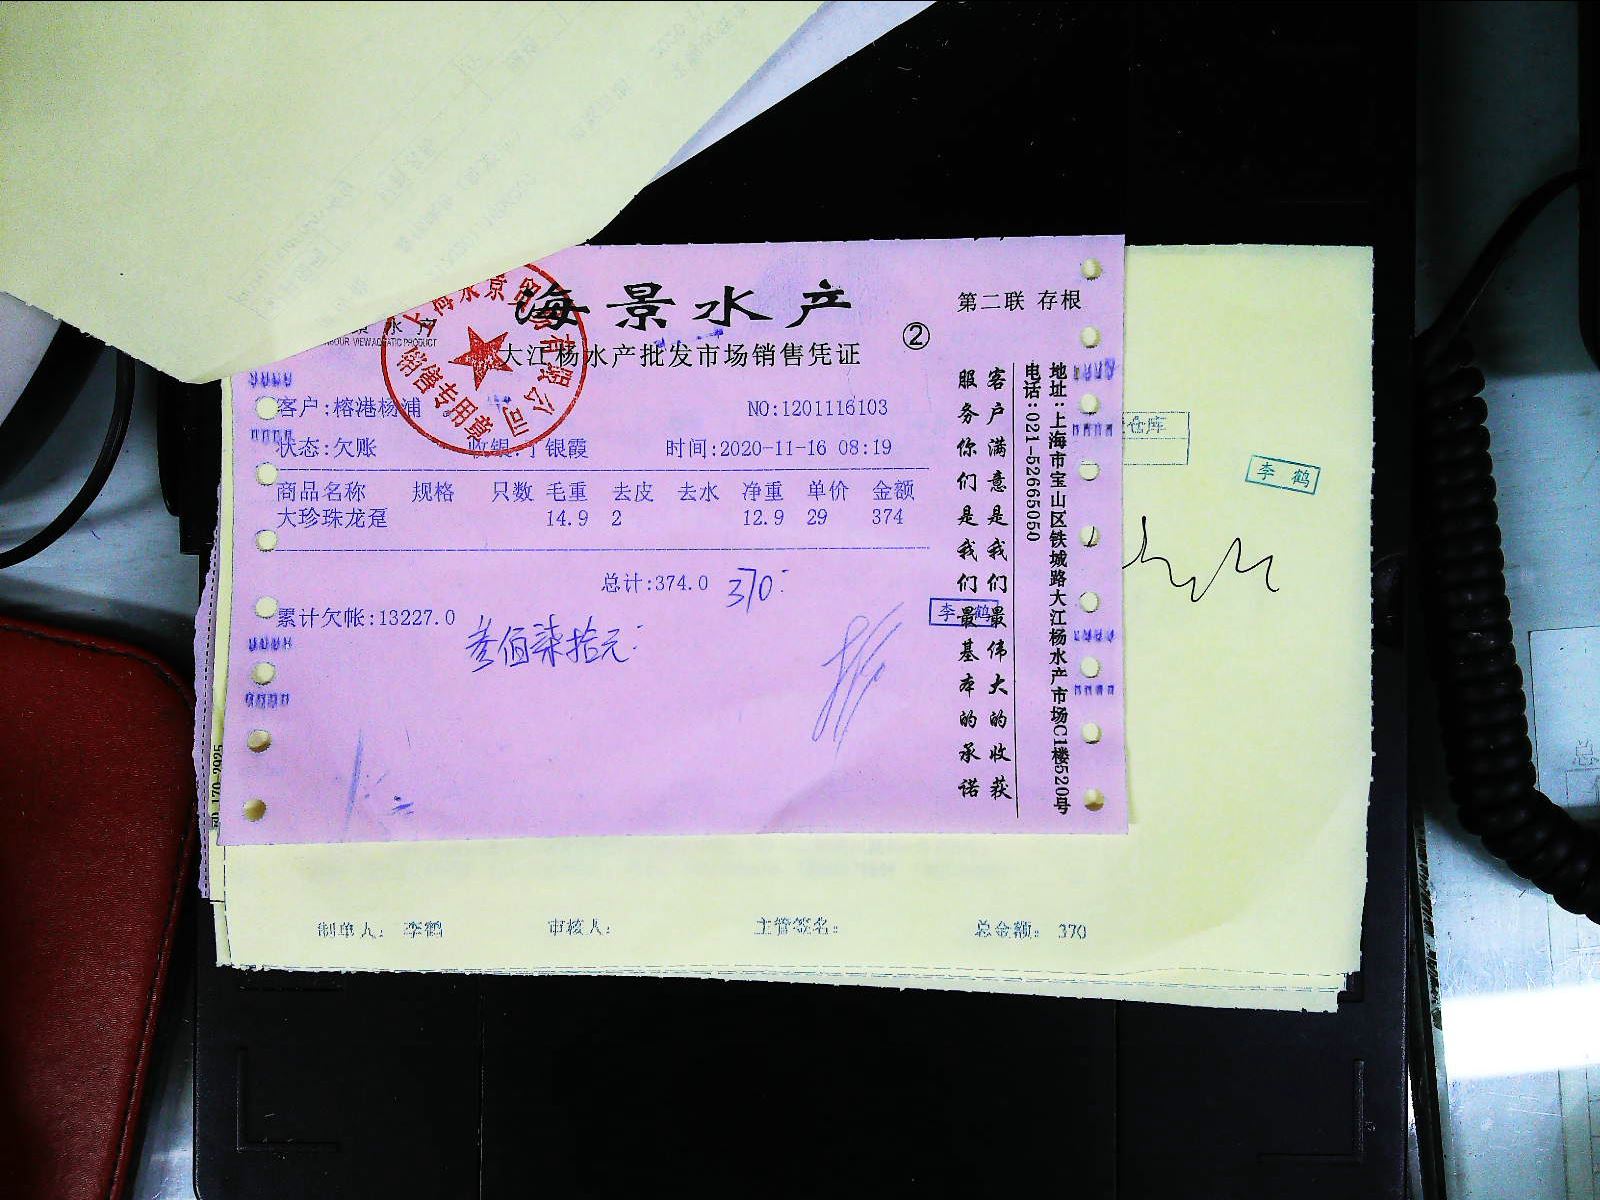 海景水产
大江杨水产批发市场销售凭证
②
第二联 存根
水产
VIEW AQUATIC PRODUCT
销售专用章
客户:榕港杨浦
NO:1201116103
状态:欠账 收银:丁银霞 时间:2020-11-16 08:19
商品名称 规格 只数 毛重 去皮 去水 净重 单价 金额
大珍珠龙趸 14.9 2 12.9 29 374
总计:374.0 370
累计欠帐:13227.0
叁佰柒拾元
李鹤
客户满意是我们最伟大的收获
服务你们是我们最基本的承诺
地址:上海市宝山区铁城路大江杨水产市场C1楼520号
电话:021-52665050
仓库
李鹤
制单人: 李鹤 审核人: 主管签名: 总金额: 370